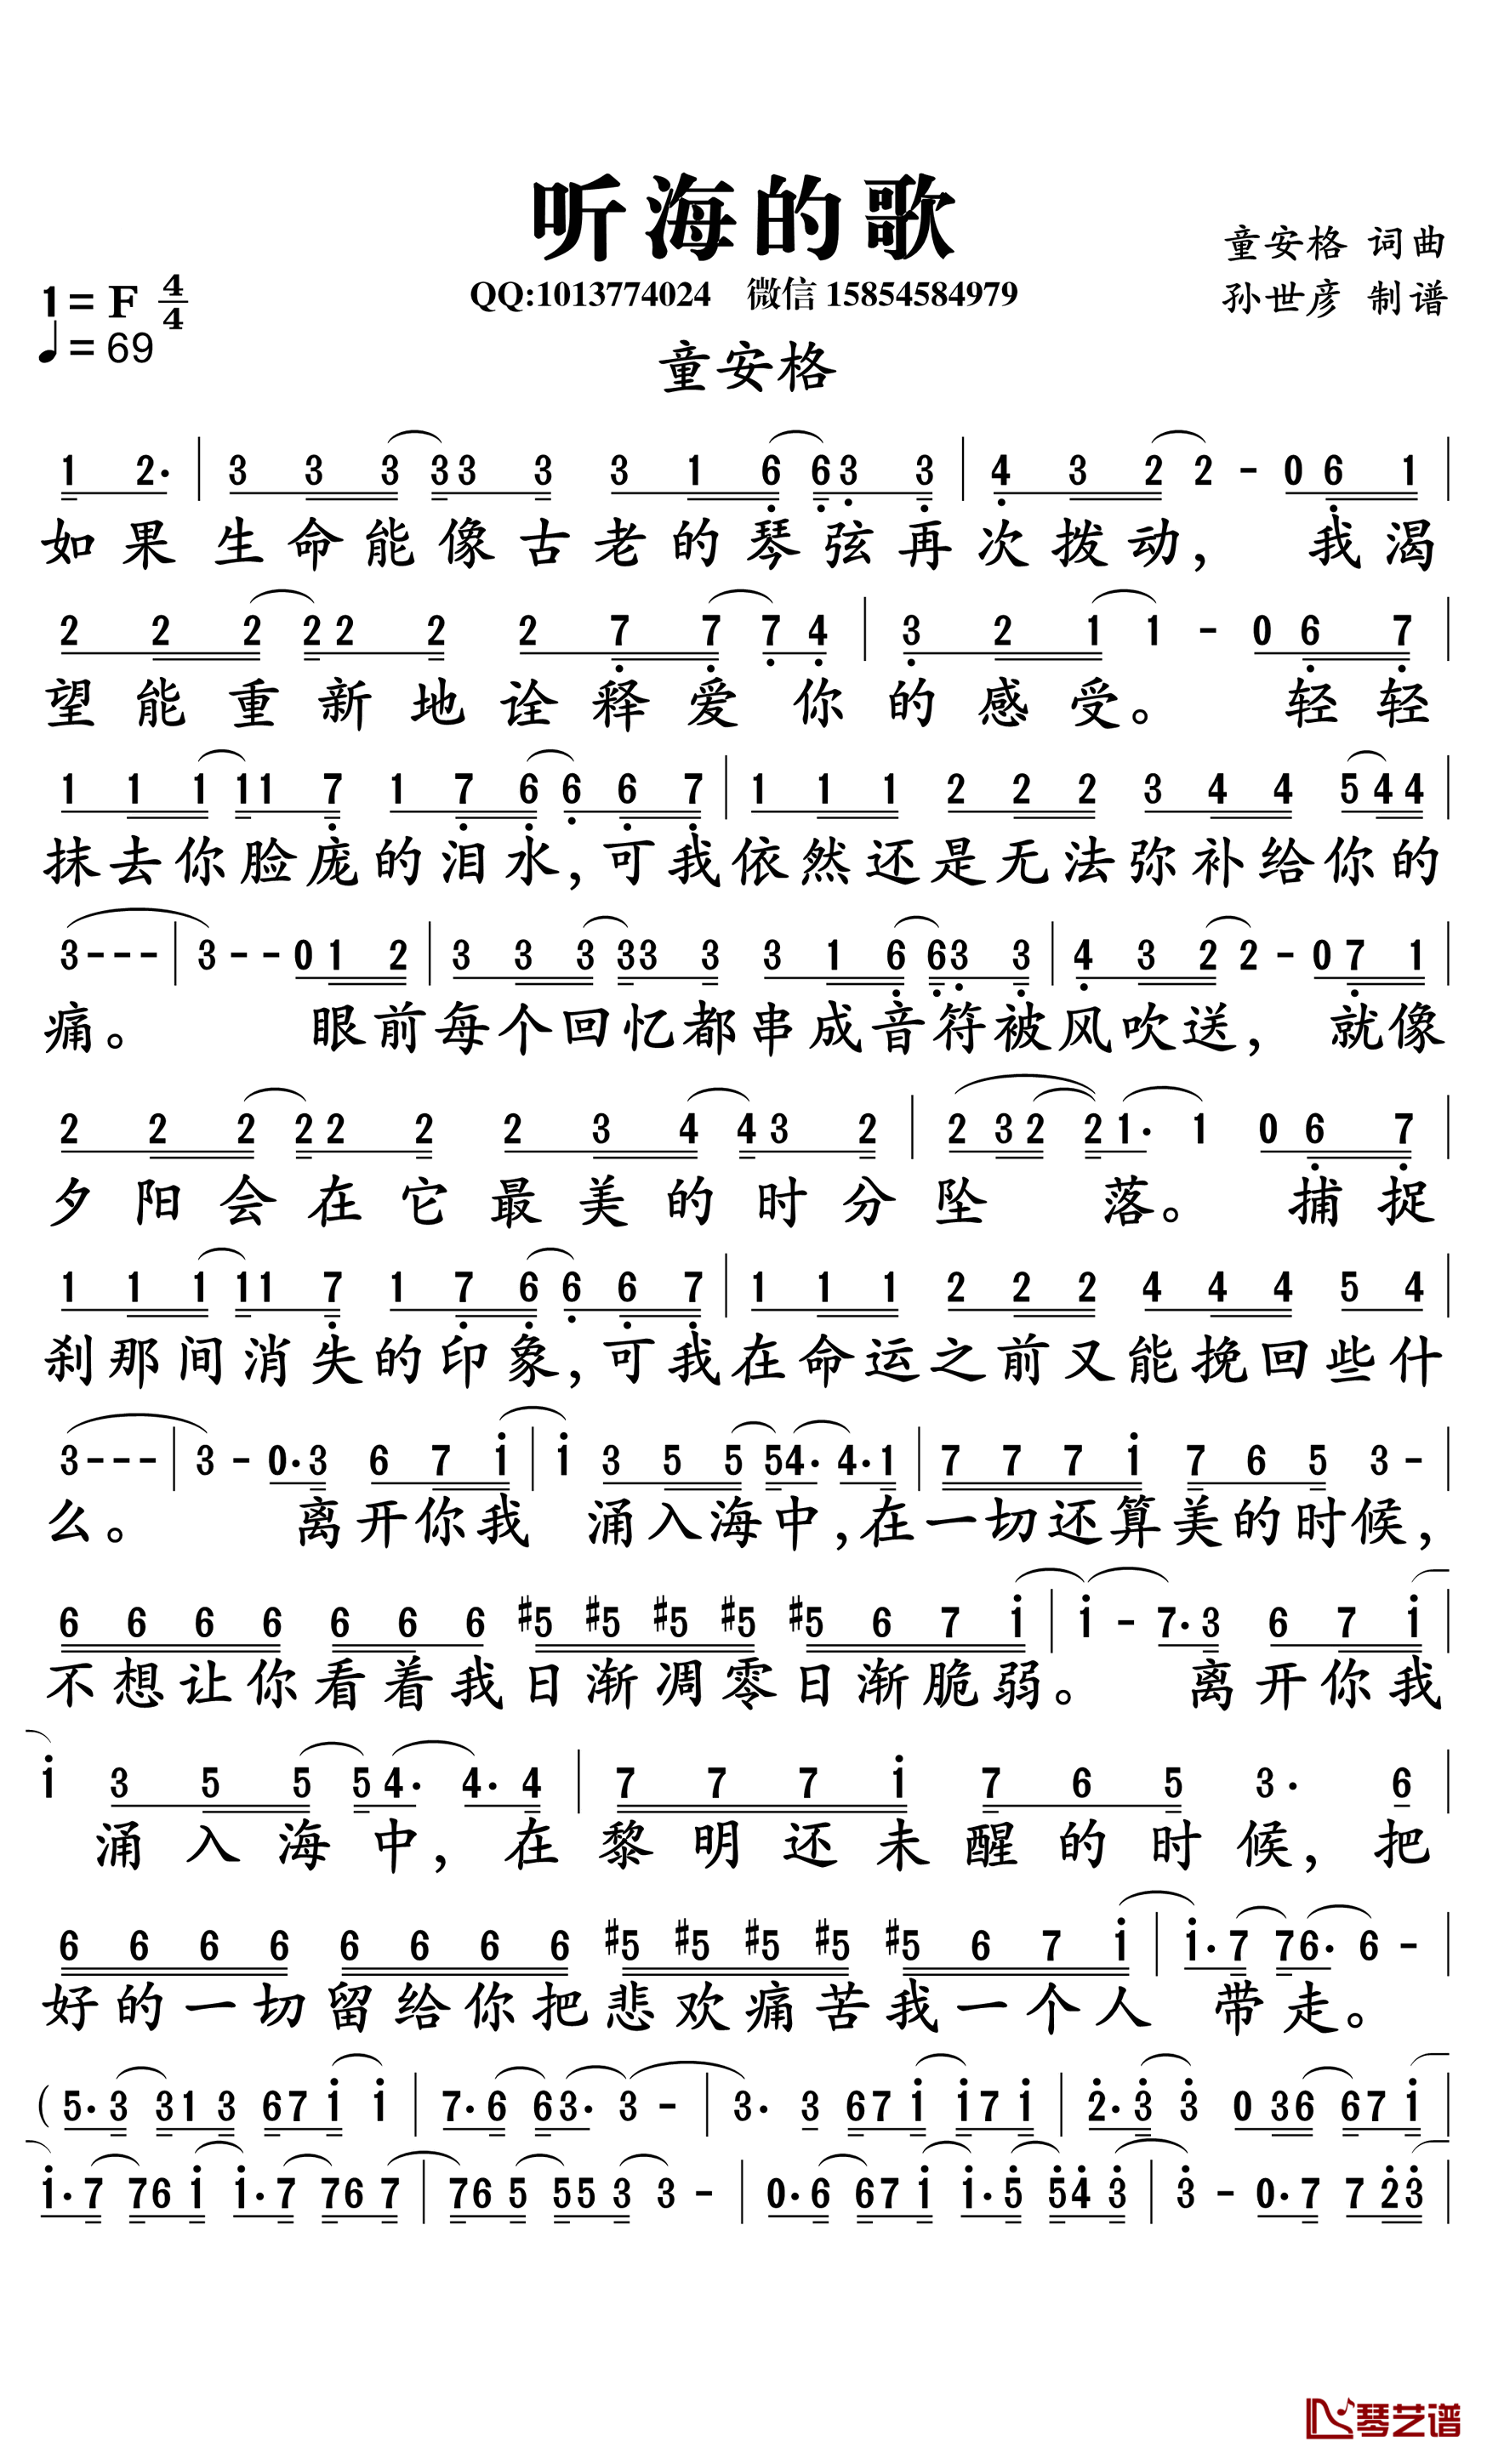 听海的歌
童安格 词曲
1= F 4/4
QQ:1013774024 微信 15854584979
孙世彦 制谱
♩= 69
童安格
1 2· | 3 3 3 3 3 3 3 1 6 6 3 3 | 4 3 2 2 - 0 6 1 |
如果生命能像古老的琴弦再次拨动， 我渴
2 2 2 2 2 2 2 7 7 7 4 | 3 2 1 1 - 0 6 7 |
望能重新地诠释爱你的感受。 轻轻
1 1 1 1 1 7 1 7 6 6 6 7 | 1 1 1 2 2 2 3 4 4 5 4 4 |
抹去你脸庞的泪水，可我依然还是无法弥补给你的
3 - - - | 3 - - 0 1 2 | 3 3 3 3 3 3 3 1 6 6 3 3 | 4 3 2 2 - 0 7 1 |
痛。 眼前每个回忆都串成音符被风吹送， 就像
2 2 2 2 2 2 2 3 4 4 3 2 | 2 3 2 2 1· 1 0 6 7 |
夕阳会在它最美的时分坠 落。 捕捉
1 1 1 1 1 7 1 7 6 6 6 7 | 1 1 1 2 2 2 4 4 4 5 4 |
刹那间消失的印象，可我在命运之前又能挽回些什
3 - - - | 3 - 0· 3 6 7 i | i 3 5 5 5 4· 4· 1 | 7 7 7 i 7 6 5 3 - |
么。 离开你我 涌入海中，在一切还算美的时候，
6 6 6 6 6 6 6 #5 #5 #5 #5 #5 6 7 i | i - 7· 3 6 7 i |
不想让你看着我日渐凋零日渐脆弱。 离开你我
i 3 5 5 5 4· 4· 4 | 7 7 7 i 7 6 5 3· 6 |
涌入海中，在黎明还未醒的时候，把
6 6 6 6 6 6 6 6 #5 #5 #5 #5 #5 6 7 i | i· 7 7 6· 6 - |
好的一切留给你把悲欢痛苦我一个人 带走。
( 5· 3 3 1 3 6 7 i i | 7· 6 6 3· 3 - | 3· 3 6 7 i i 7 i | 2· 3 3 0 3 6 6 7 i |
i· 7 7 6 i i· 7 7 6 7 | 7 6 5 5 5 3 3 - | 0· 6 6 7 i i· 5 5 4 3 | 3 - 0· 7 7 2 3 |
琴艺谱